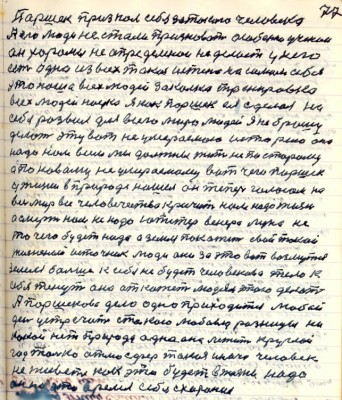 77
Паршек признал себя за такого человека
А его люди не стали признавать особенно ученые
он хороми не определился не делает у него
есть одна из всех такая истина на самим себе
это наша всех людей закалка тренировка
всех людей наука Я как Паршек ея сделал на
себя развил для всего мира людей Я не брошу
делать эту вот не умираемого история она
надо нам всем мы должны жить не по старому
а по новому не умираемому вот чего Паршек
у жизни в природе нашел он теперь голосом на
весь мир все человечество кричит нам надо жизнь
а смерть нам не надо Юпитер венера луна не
то чего будет надо а земля покажет свой такой
жизненный источник люди они за это вот возьмутся
земля больше к себе не будет человеково тело к
себе тянуть она откажет людям этого делать
А Паршеково дело одно приходится любой
день встречать с такого любовью разницы ни
какой нет природа одна она лежит круглый
год только атмосфера такая иначе человек
не живет как это будет в жизни надо